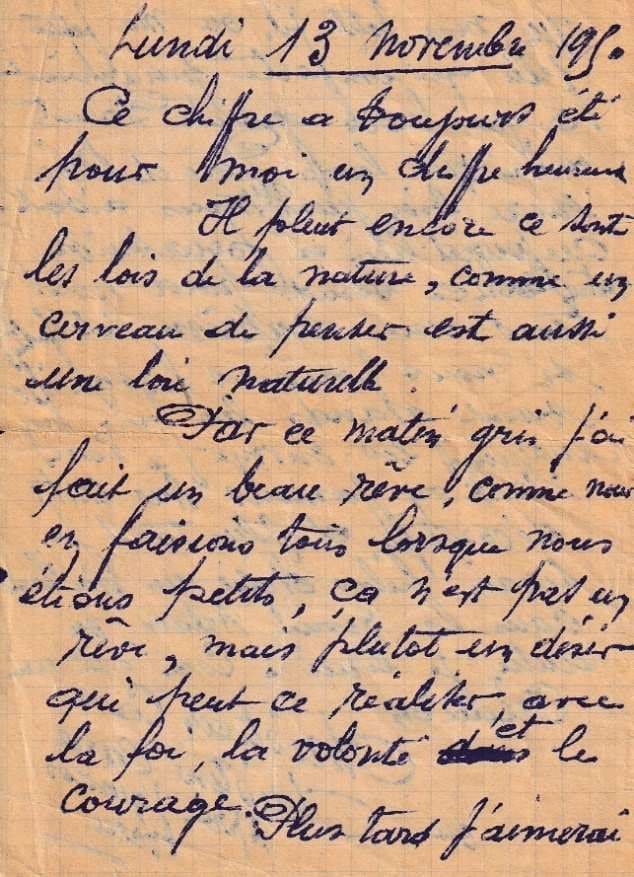 Lundi 13 Novembre 1950
Ce chiffre a toujours été
pour moi un chiffre heureux
Il pleut encore ce sont
les lois de la nature, comme un
cerveau de penser est aussi
une loie naturelle.
Par ce matin gris j'ai
fait un beau rêve, comme nous
en faisions tous lorsque nous
étions petits, ça n'est pas un
rêve, mais plutot un désir
qui peut ce réaliser avec
la foi, la volonté et le
courage.
Plus tard j'aimerai